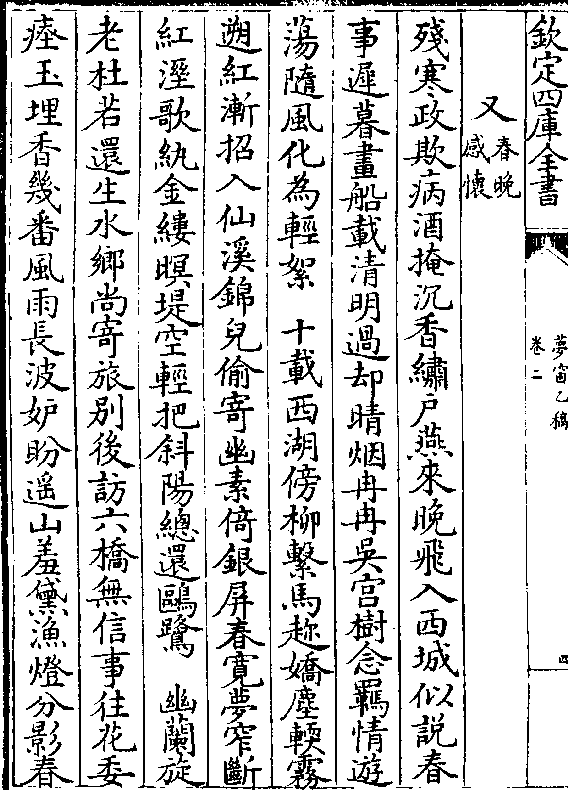 欽定四庫全書
夢窗乙稿
卷二
四
又春晚感懷
殘寒政欺病酒掩沉香繡户燕來晚飛入西城似説春
事遲暮畫船載清明過却晴烟冉冉吳宮樹念羈情遊
蕩隨風化為輕絮　十載西湖傍柳繫馬趂嬌塵輭霧
遡紅漸招入仙溪錦兒偷寄幽素倚銀屏春寛夢窄斷
紅溼歌紈金縷暝堤空輕把斜陽總還鷗鷺　幽蘭旋
老杜若還生水鄉尚寄旅别後訪六橋無信事往花委
瘞玉埋香幾番風雨長波妒盼遥山羞黛漁燈分影春